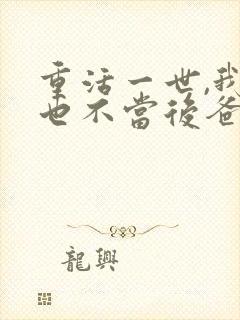 重活一世,我
也不當後爸
龍興